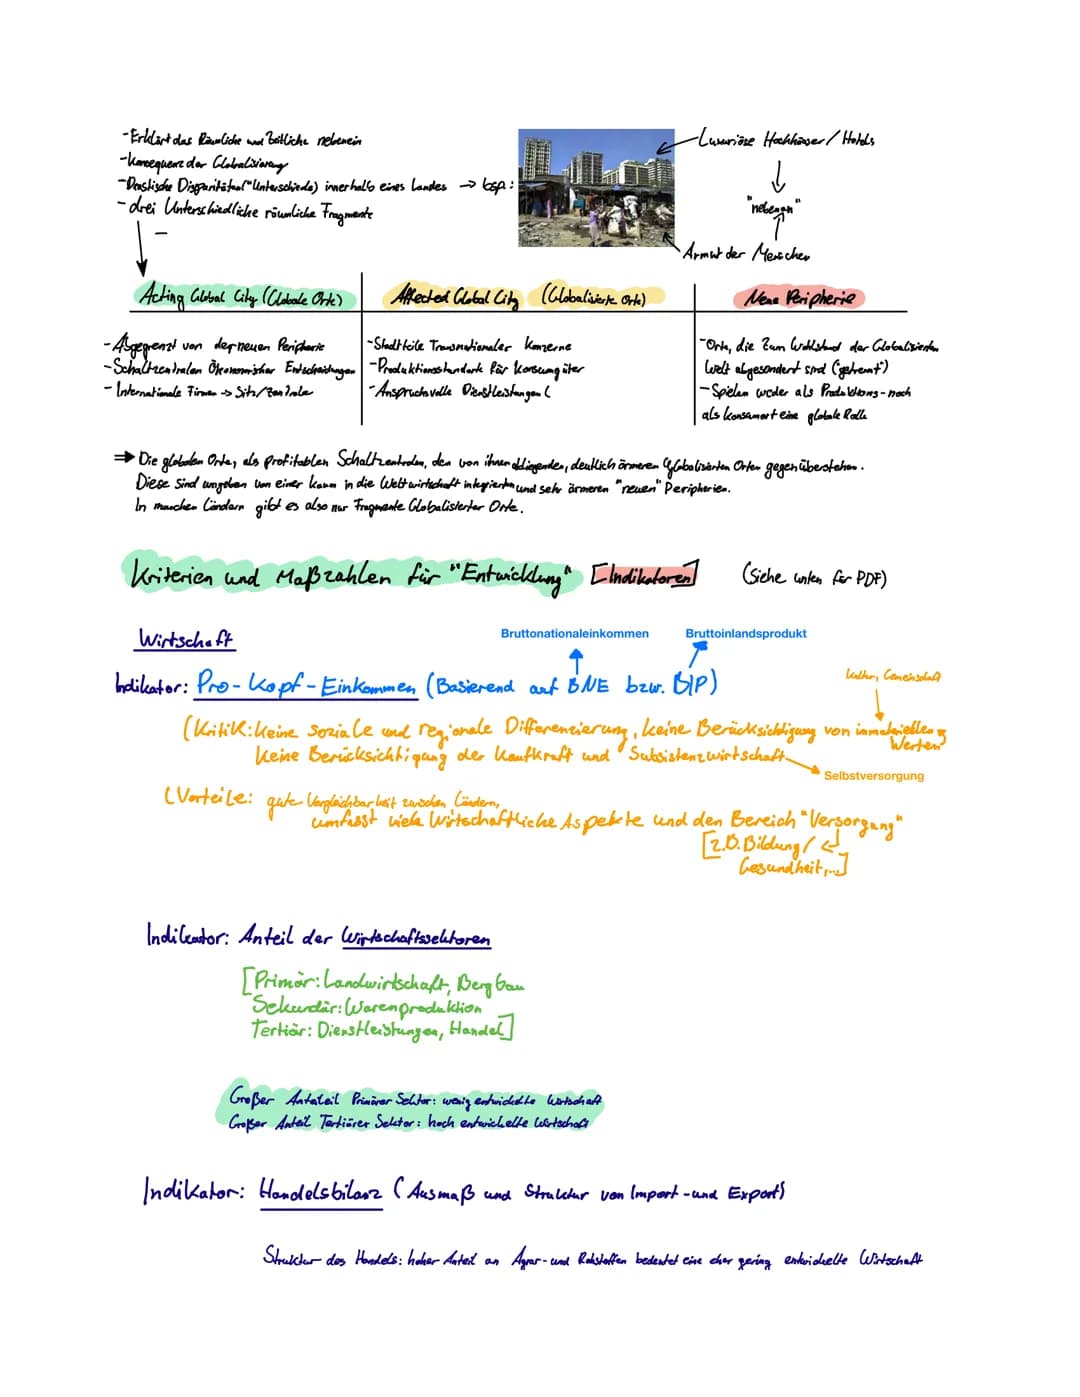 -Erklärt das Räumliche und Zeitliche nebenein
-Konsequenz der Globalisierung
-Drastische Disparitäten("Unterschiede) innerhalb eines Landes → bsp:
-drei Unterschiedliche räumliche Fragmente
Luxuriöse Hochhäuser/Hotels
"nebenan"
Armut der Menschen
Acting Global City (Globale Orte)
Affected Global City (Globalisierte Orte)
Neue Peripherie
-Abgegrenzt von der neuen Peripherie
-Schaltzentralen Ökonomischer Entscheidungen
-Internationale Firmen → Sitz/Zentrale
-Stadtteile Transnationaler Konzerne
-Produktionsstandorte für Konsumgüter
-Anspruchsvolle Dienstleistungen (
-Orte, die Zum Wohlstand der Globalisierten
Welt abgesondert sind ("getrennt")
-Spielen weder als Produktions-noch
als Konsumort eine globale Rolle
⇒ Die globalen Orte, als profitablen Schaltzentralen, den von ihnen abhängenden, deutlich ärmeren Globalisierten Orten gegenüberstehen.
Diese sind umgeben von einer kaum in die Weltwirtschaft integrierten und sehr ärmeren "neuen" Peripherien.
In manchen Ländern gibt es also nur Fragmente Globalisierter Orte.
Kriterien und Maßzahlen für "Entwicklung" [Indikatoren] (Siehe unten für PDF)
Wirtschaft
Bruttonationaleinkommen
Bruttoinlandsprodukt
Indikator: Pro-Kopf-Einkommen (Basierend auf BNE bzw. BIP)
Kultur, Gemeinschaft
(Kritik: keine soziale und regionale Differenzierung, keine Berücksichtigung von immateriellen
Werten
keine Berücksichtigung der Kaufkraft und Subsistenzwirtschaft
Selbstversorgung
(Vorteile: gute Vergleichbarkeit zwischen Ländern,
umfasst viele Wirtschaftliche Aspekte und den Bereich "Versorgung"
[z.B. Bildung/
Gesundheit,...]
Indikator: Anteil der Wirtschaftssektoren
[Primär: Landwirtschaft, Bergbau
Sekundär: Warenproduktion
Tertiär: Dienstleistungen, Handel]
Großer Antateil Primärer Sektor: wenig entwickelte Wirtschaft
Großer Anteil Tertiärer Sektor: hoch entwickelte Wirtschaft
Indikator: Handelsbilanz (Ausmaß und Struktur von Import-und Export)
Struktur des Handels: hoher Anteil an Agrar-und Rohstoffen bedeutet eine eher gering entwickelte Wirtschaft